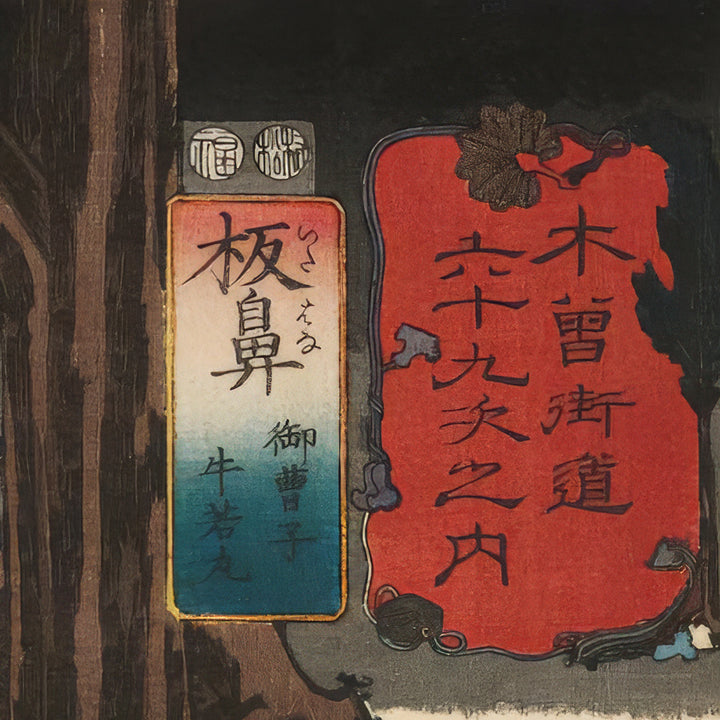 木曽街道
六十九次之内
板鼻
いたはな
御曹子
牛若丸
福